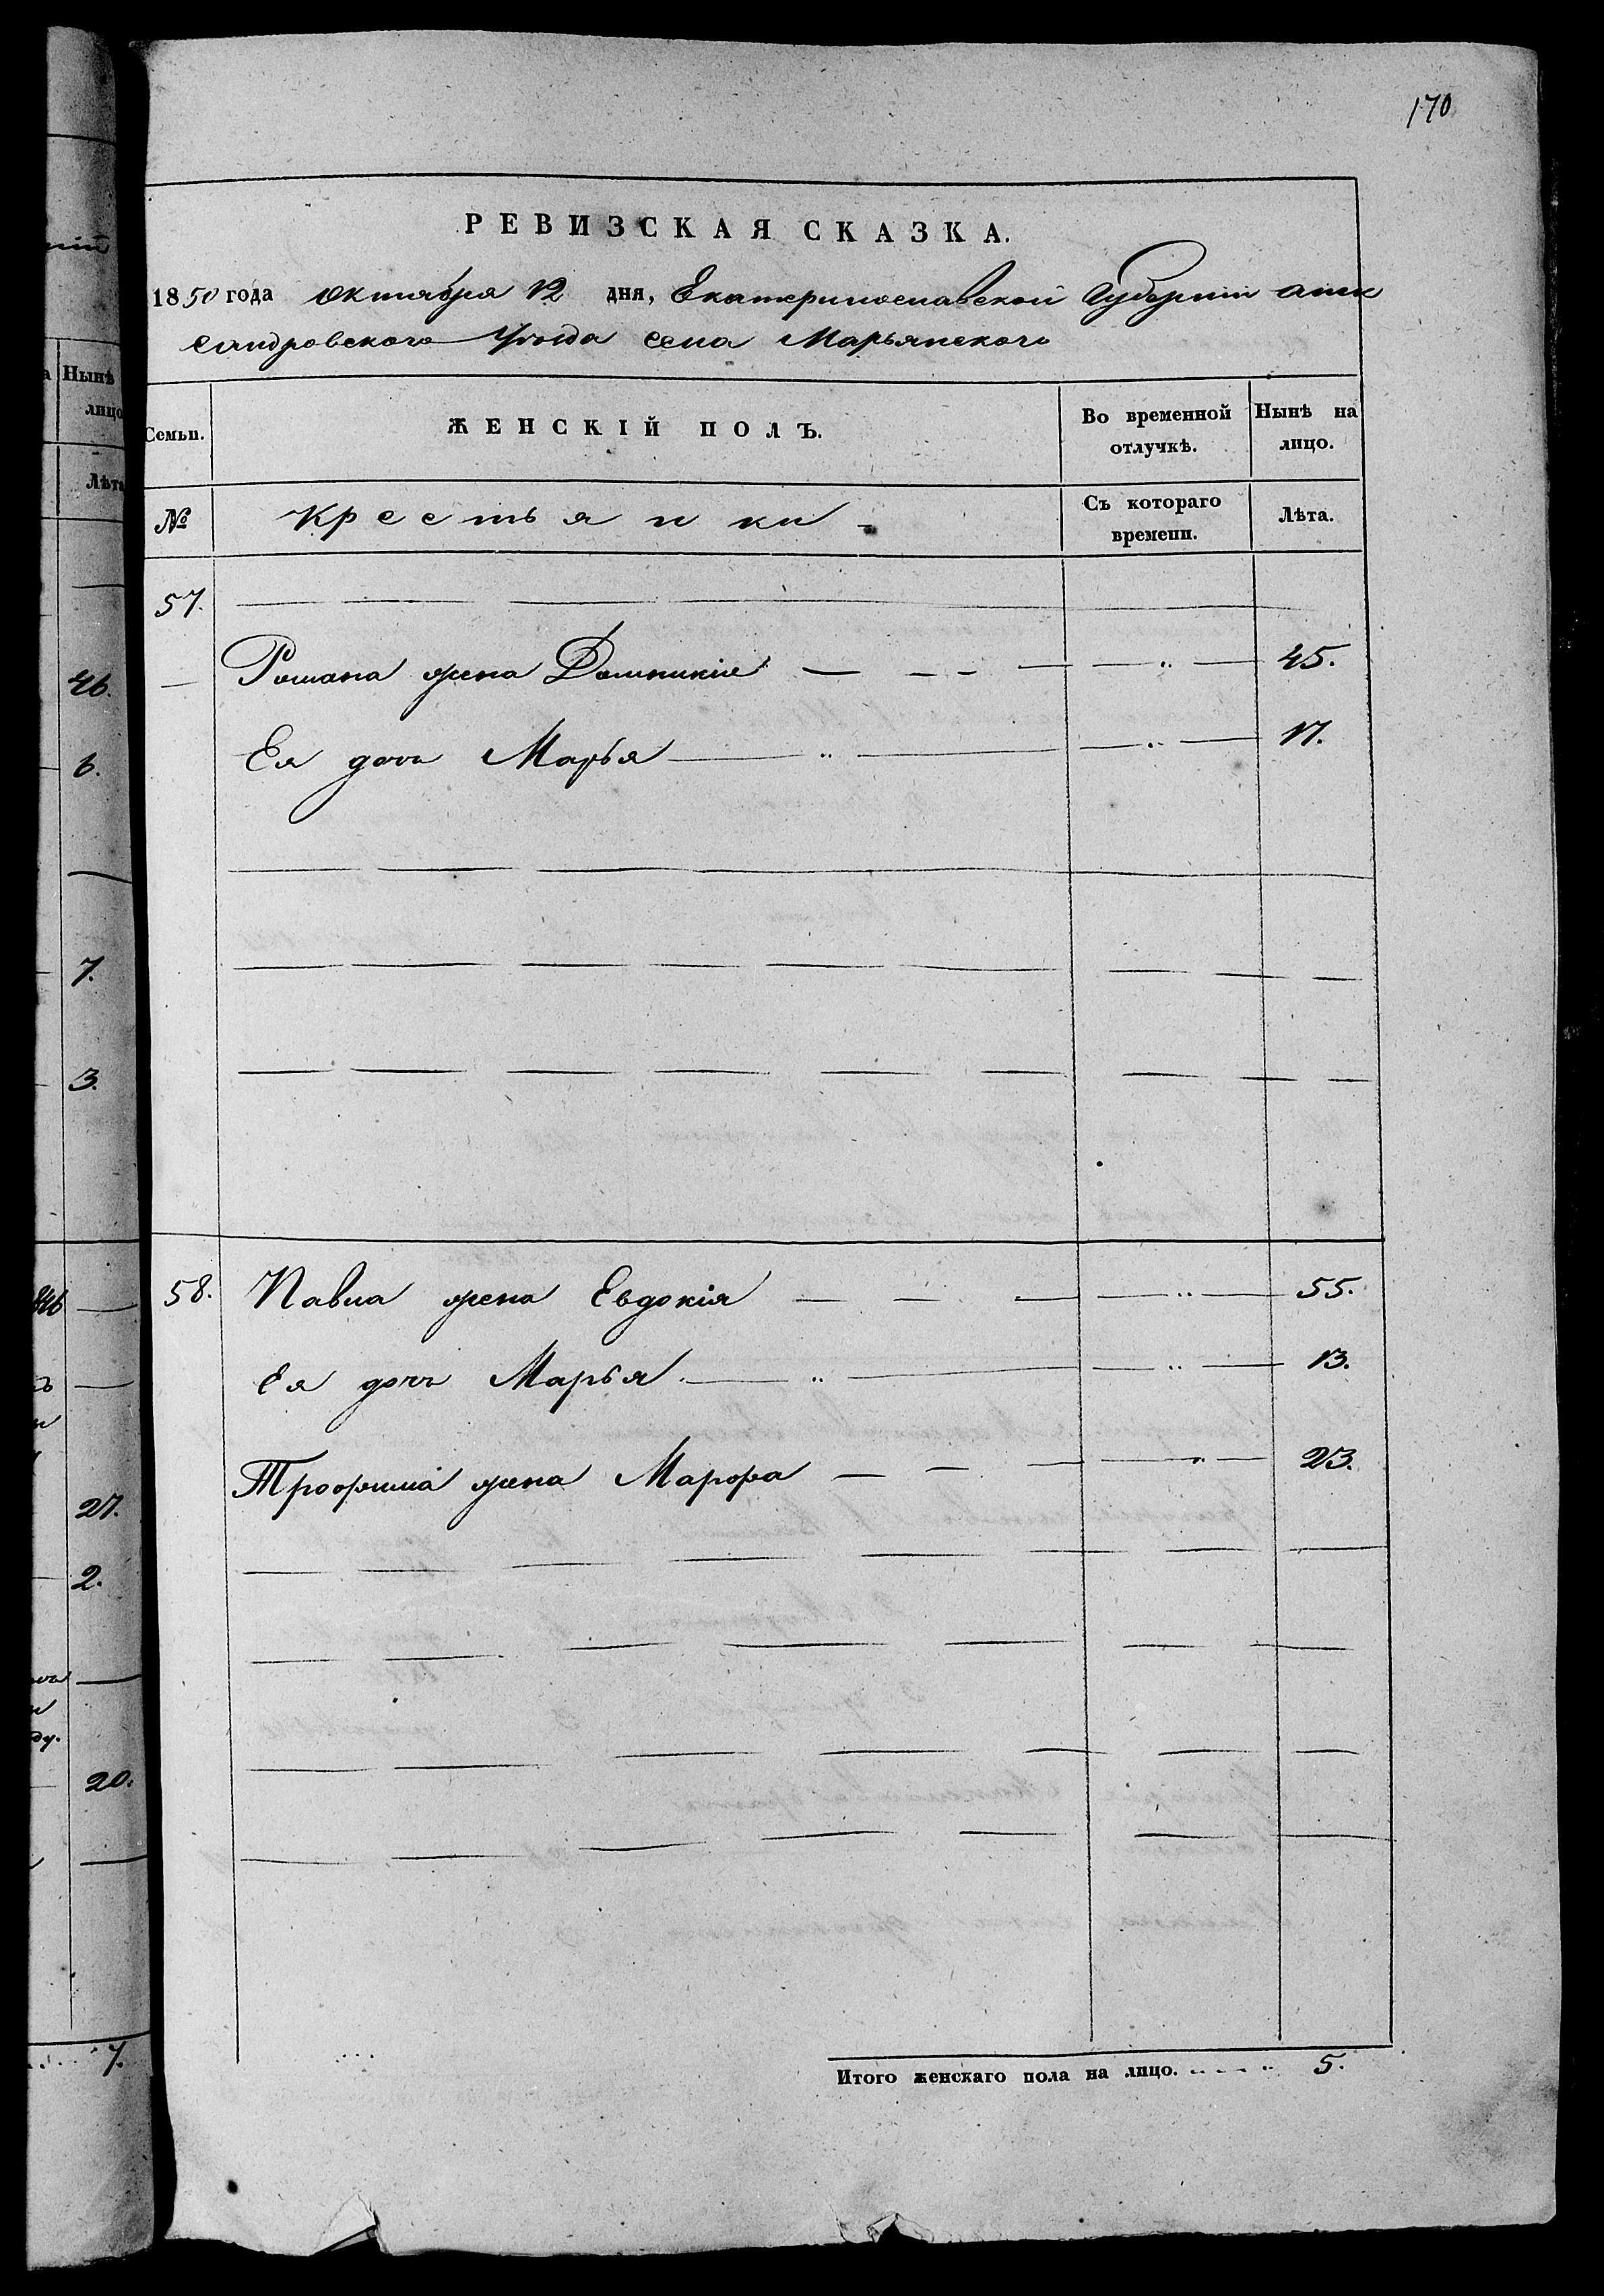 170
РЕВИЗСКАЯ СКАЗКА.
1850 года Октября 12 дня, Екатеринославской Губернии Алек
сандровского Уѣзда села Марьянского
Семьи. ЖЕНСКІЙ ПОЛЪ. Во временной отлучкѣ. Нынѣ на лицо.
№ Крестьянки Съ котораго времени. Лѣта.
57.
Романа жена Домникія 45.
Ея дочь Марья 17.
58. Павла жена Евдокія 55.
Ея дочь Марья 13.
Трофима жена Марфа 23.
Итого женскаго пола на лицо. 5.
Нынѣ
лицо
Лѣта
46.
6.
7.
3.
27.
2.
ду.
20.
7.